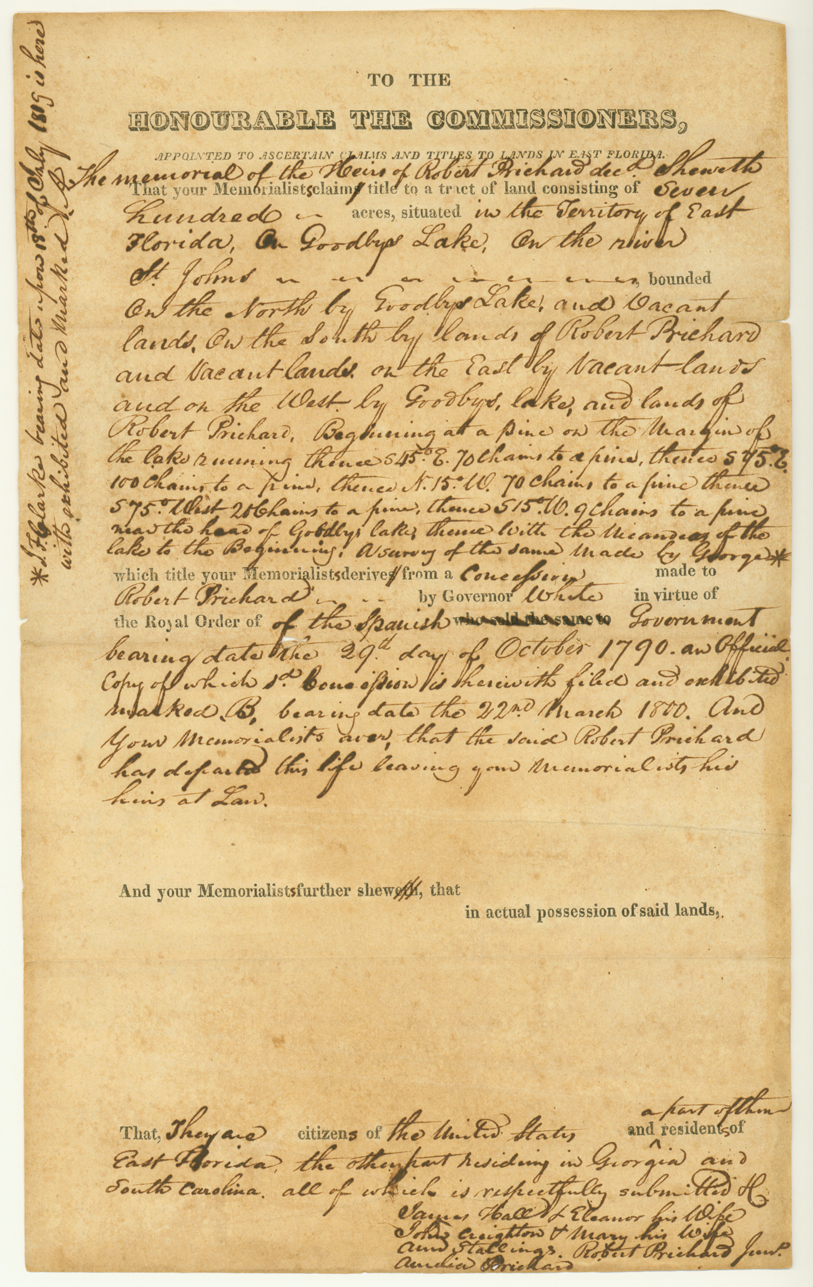 TO THE
HONOURABLE THE COMMISSIONERS,
APPOINTED TO ASCERTAIN CLAIMS AND TITLES TO LANDS IN EAST FLORIDA.
The memorial of the Heirs of Robert Prichard decd. Sheweth
That your Memorialists claim title to a tract of land consisting of Seven
hundred acres, situated in the Territory of East
Florida, On Goodbys Lake, On the river
St. Johns , bounded
On the North by Goodbys Lake, and Vacant
lands. On the South by lands of Robert Prichard
and Vacant lands. on the East by Vacant lands
and on the West by Goodbys, lake, and lands of
Robert Prichard, Beginning at a pine on the Margin of
the lake running thence S 45° E. 70 Chains to a pine, thence S 75° E.
100 Chains to a pine, thence N. 15° W. 70 Chains to a pine thence
S 75° West 20 Chains to a pine, thence S 15° W. 9 Chains to a pine
near the head of Godbys lake, thence With the Meanders of the
lake to the Beginning. A survey of the same Made by George *
which title your Memorialists derive from a Concession made to
Robert Prichard by Governor White in virtue of
the Royal Order of of the Spanish who sold the same to Government
bearing date the 29th day of October 1790. an Official
Copy of which sd. Concession is herewith filed and exhibited
marked B, bearing date the 22nd March 1800. And
Your Memorialists aver, that the said Robert Prichard
has departed this life leaving your Memorialists his
heirs at Law.
And your Memorialists further shew, that
in actual possession of said lands,.
a part of them
That, They are citizens of the United States and residents of
East Florida, the other part residing in Georgia and
South Carolina. all of which is respectfully submitted
James Hall & Eleanor his Wife
John Creighton & Mary his Wife
Ann Stallings. Robert Prichard Junr.
Amelia Prichard
* J F Clarke bearing date upon 18th of July 1819 is here
with exhibited and Marked A